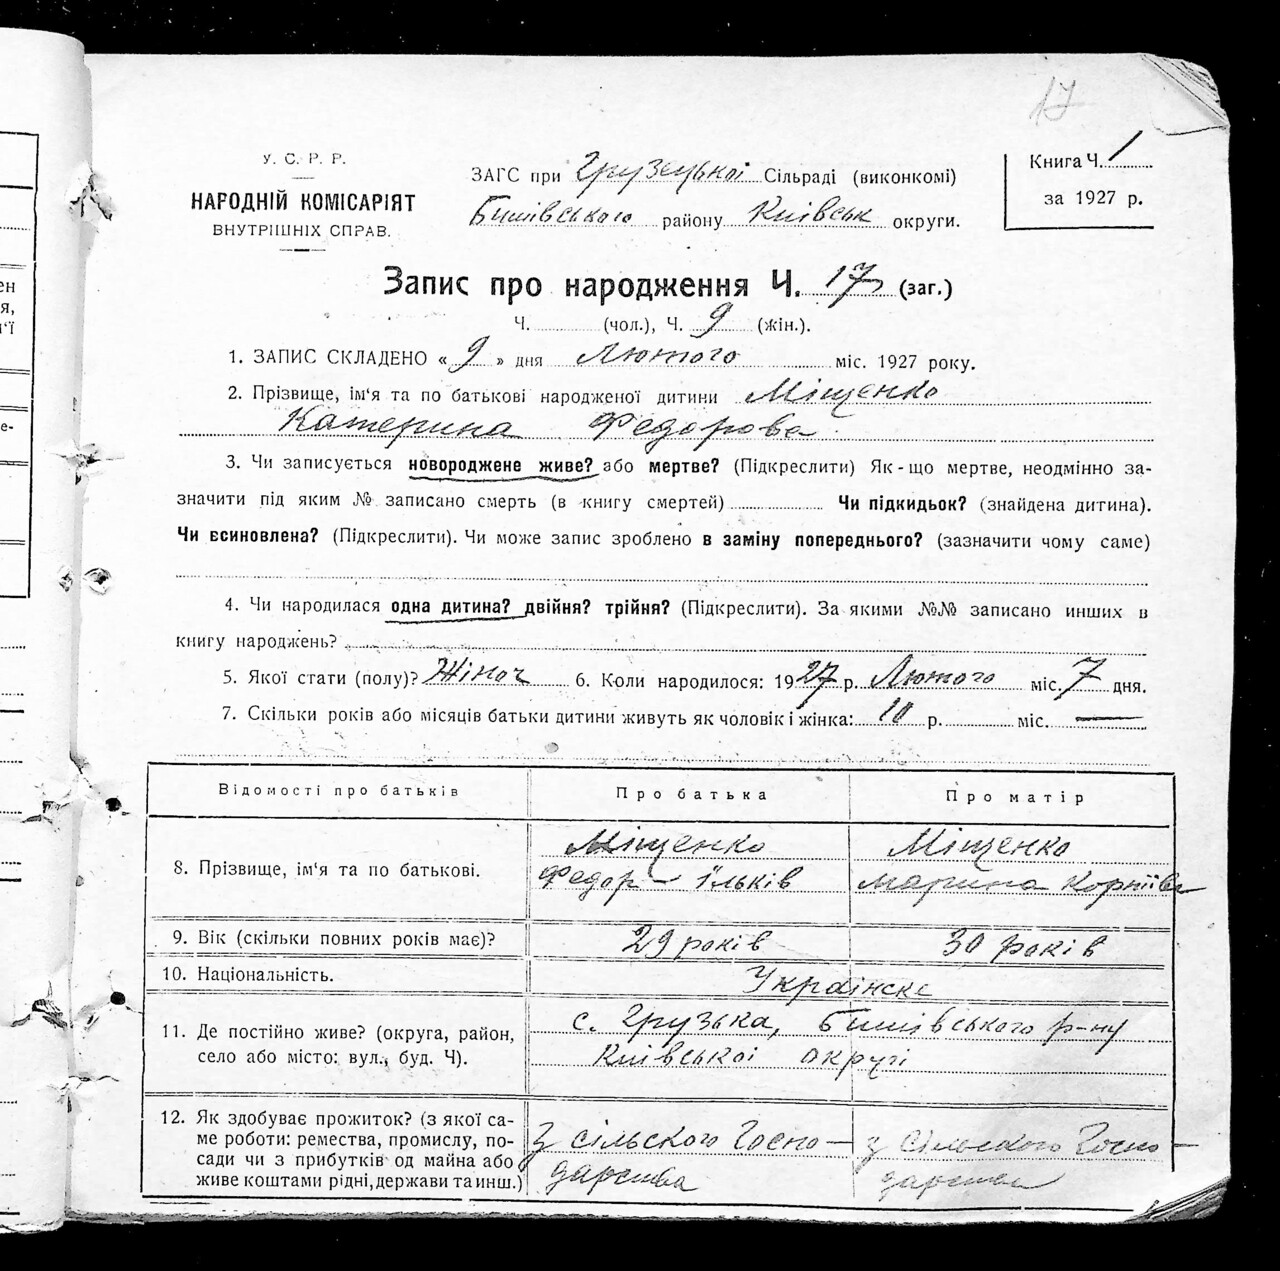 17
У. С. Р. Р.
НАРОДНІЙ КОМІСАРІЯТ
ВНУТРІШНІХ СПРАВ.
ЗАГС при Грузецької Сільраді (виконкомі)
Бишівського району Київськ округи.
Книга Ч. 1
за 1927 р.
Запис про народження Ч. 17 (заг.)
Ч. (чол.), Ч. 9 (жін.).
1. ЗАПИС СКЛАДЕНО « 9 » дня Лютого міс. 1927 року.
2. Прізвище, ім'я та по батькові народженої дитини Міщенко
Катерина Федорова
3. Чи записується новороджене живе? або мертве? (Підкреслити) Як-що мертве, неодмінно за-
значити під яким № записано смерть (в книгу смертей) Чи підкидьок? (знайдена дитина).
Чи всиновлена? (Підкреслити). Чи може запис зроблено в заміну попереднього? (зазначити чому саме)
4. Чи народилася одна дитина? двійня? трійня? (Підкреслити). За якими №№ записано инших в
книгу народжень?
5. Якої стати (полу)? Жіноч 6. Коли народилося: 1927 р. Лютого міс. 7 дня.
7. Скільки років або місяців батьки дитини живуть як чоловік і жінка: 10 р. міс. —
Відомості про батьків Про батька Про матір
8. Прізвище, ім'я та по батькові.
Міщенко
Федор Їльків
Міщенко
Марина Корніїва
9. Вік (скільки повних років має)? 29 років 30 років
10. Національність. Українске
11. Де постійно живе? (округа, район,
село або місто: вул., буд. Ч).
с. Грузька, Бишівського р-ну
Київської округі
12. Як здобуває прожиток? (з якої са-
ме роботи: ремества, промислу, по-
сади чи з прибутків од майна або
живе коштами рідні, держави та инш.)
з сільского Госпо-
дарства
з Сільского Госпо-
дарства
ен
я,
ї
е-